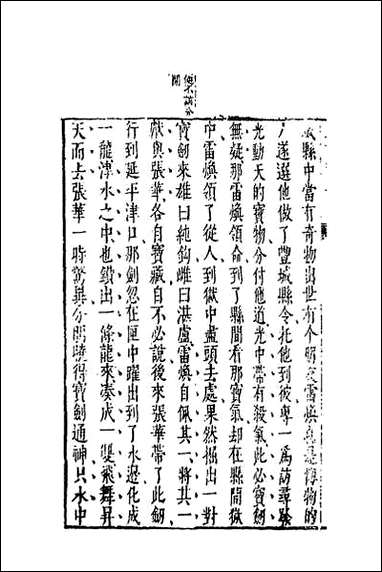 縣中當有奇物出世有个朋友雷煥是博物的
人遂選他做了豐城縣令托他到彼專一為訪尋發
光動天的寶物分付他道光中帶有殺氣此必寶劍
無疑那雷煥領命到了縣間看那寶氣却在縣間獄
中雷煥領了從人到獄中盡頭去處果然掘出一對
寶劍來雄曰純鈎雌曰湛盧雷煥自佩其一將其一
獻與張華各自寶藏自不必說後來張華帶了此劍
行到延平津口那劍忽在匣中躍出到了水邊化成
一龍津水之中也鑽出一條龍來湊成一雙飛舞昇
天而去張華一時驚異分明曉得寶劍通神只水中